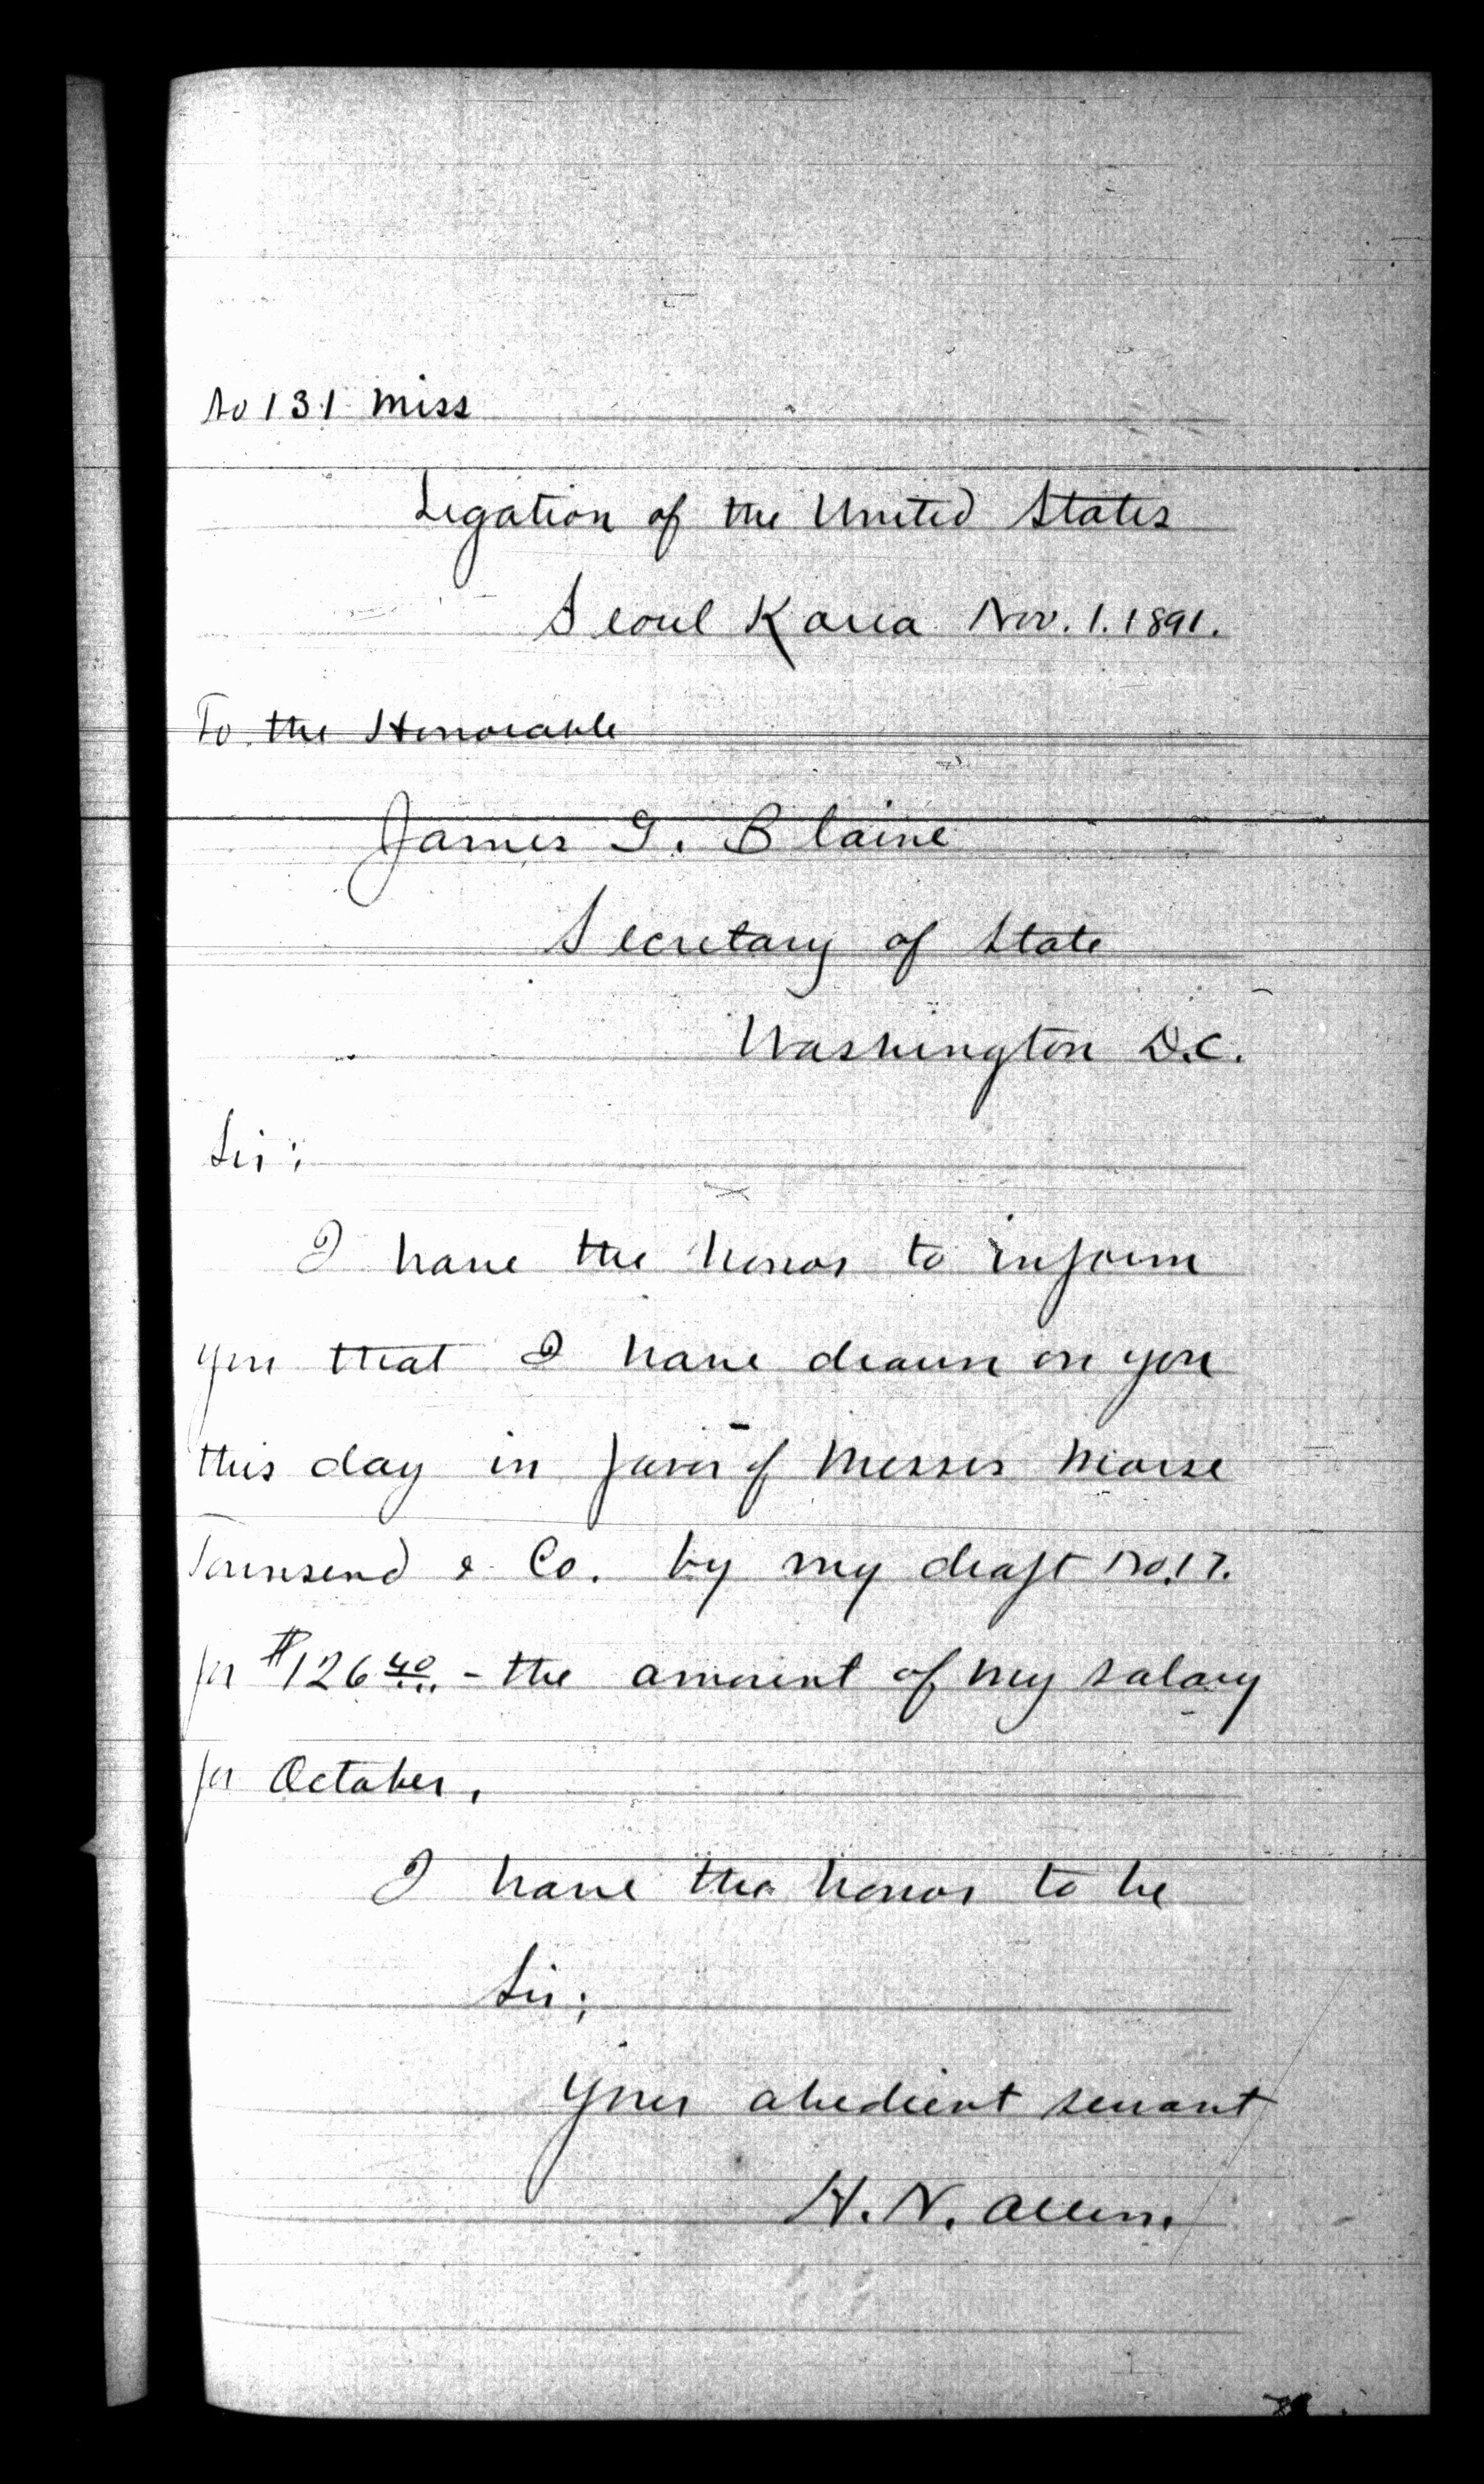 No 131 Miss
Legation of the United States
Seoul Korea Nov. 1. 1891.
To the Honorable
James G. Blaine
Secretary of State
Washington D.C.
Sir:
I have the honor to inform
you that I have drawn on you
this day in favor of Messrs Morse
Townsend & Co. by my draft No. 17.
for $126 40/... - the amount of my salary
for October.
I have the honor to be
Sir;
Your obedient servant
H. N. Allen.